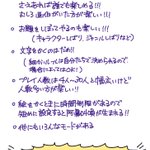 さえあれば誰でも楽しめる!!!
おもしろ画伯がいた方が楽しい!!!
お題をしぼってやるのも楽しい!!!
(キャラクターしばり、ジャンルしばりなど)
文字をかくのはだめ!!
(細かいルールは自分たちで決められるので、
場合によってはOK!)
プレイ人数は4人〜30人と幅広いけど
人数多い方が楽しい!
絵をかくときに時間制限があるので
短めに設定すると阿鼻叫喚が生まれる!
他にもいろんなモードがある